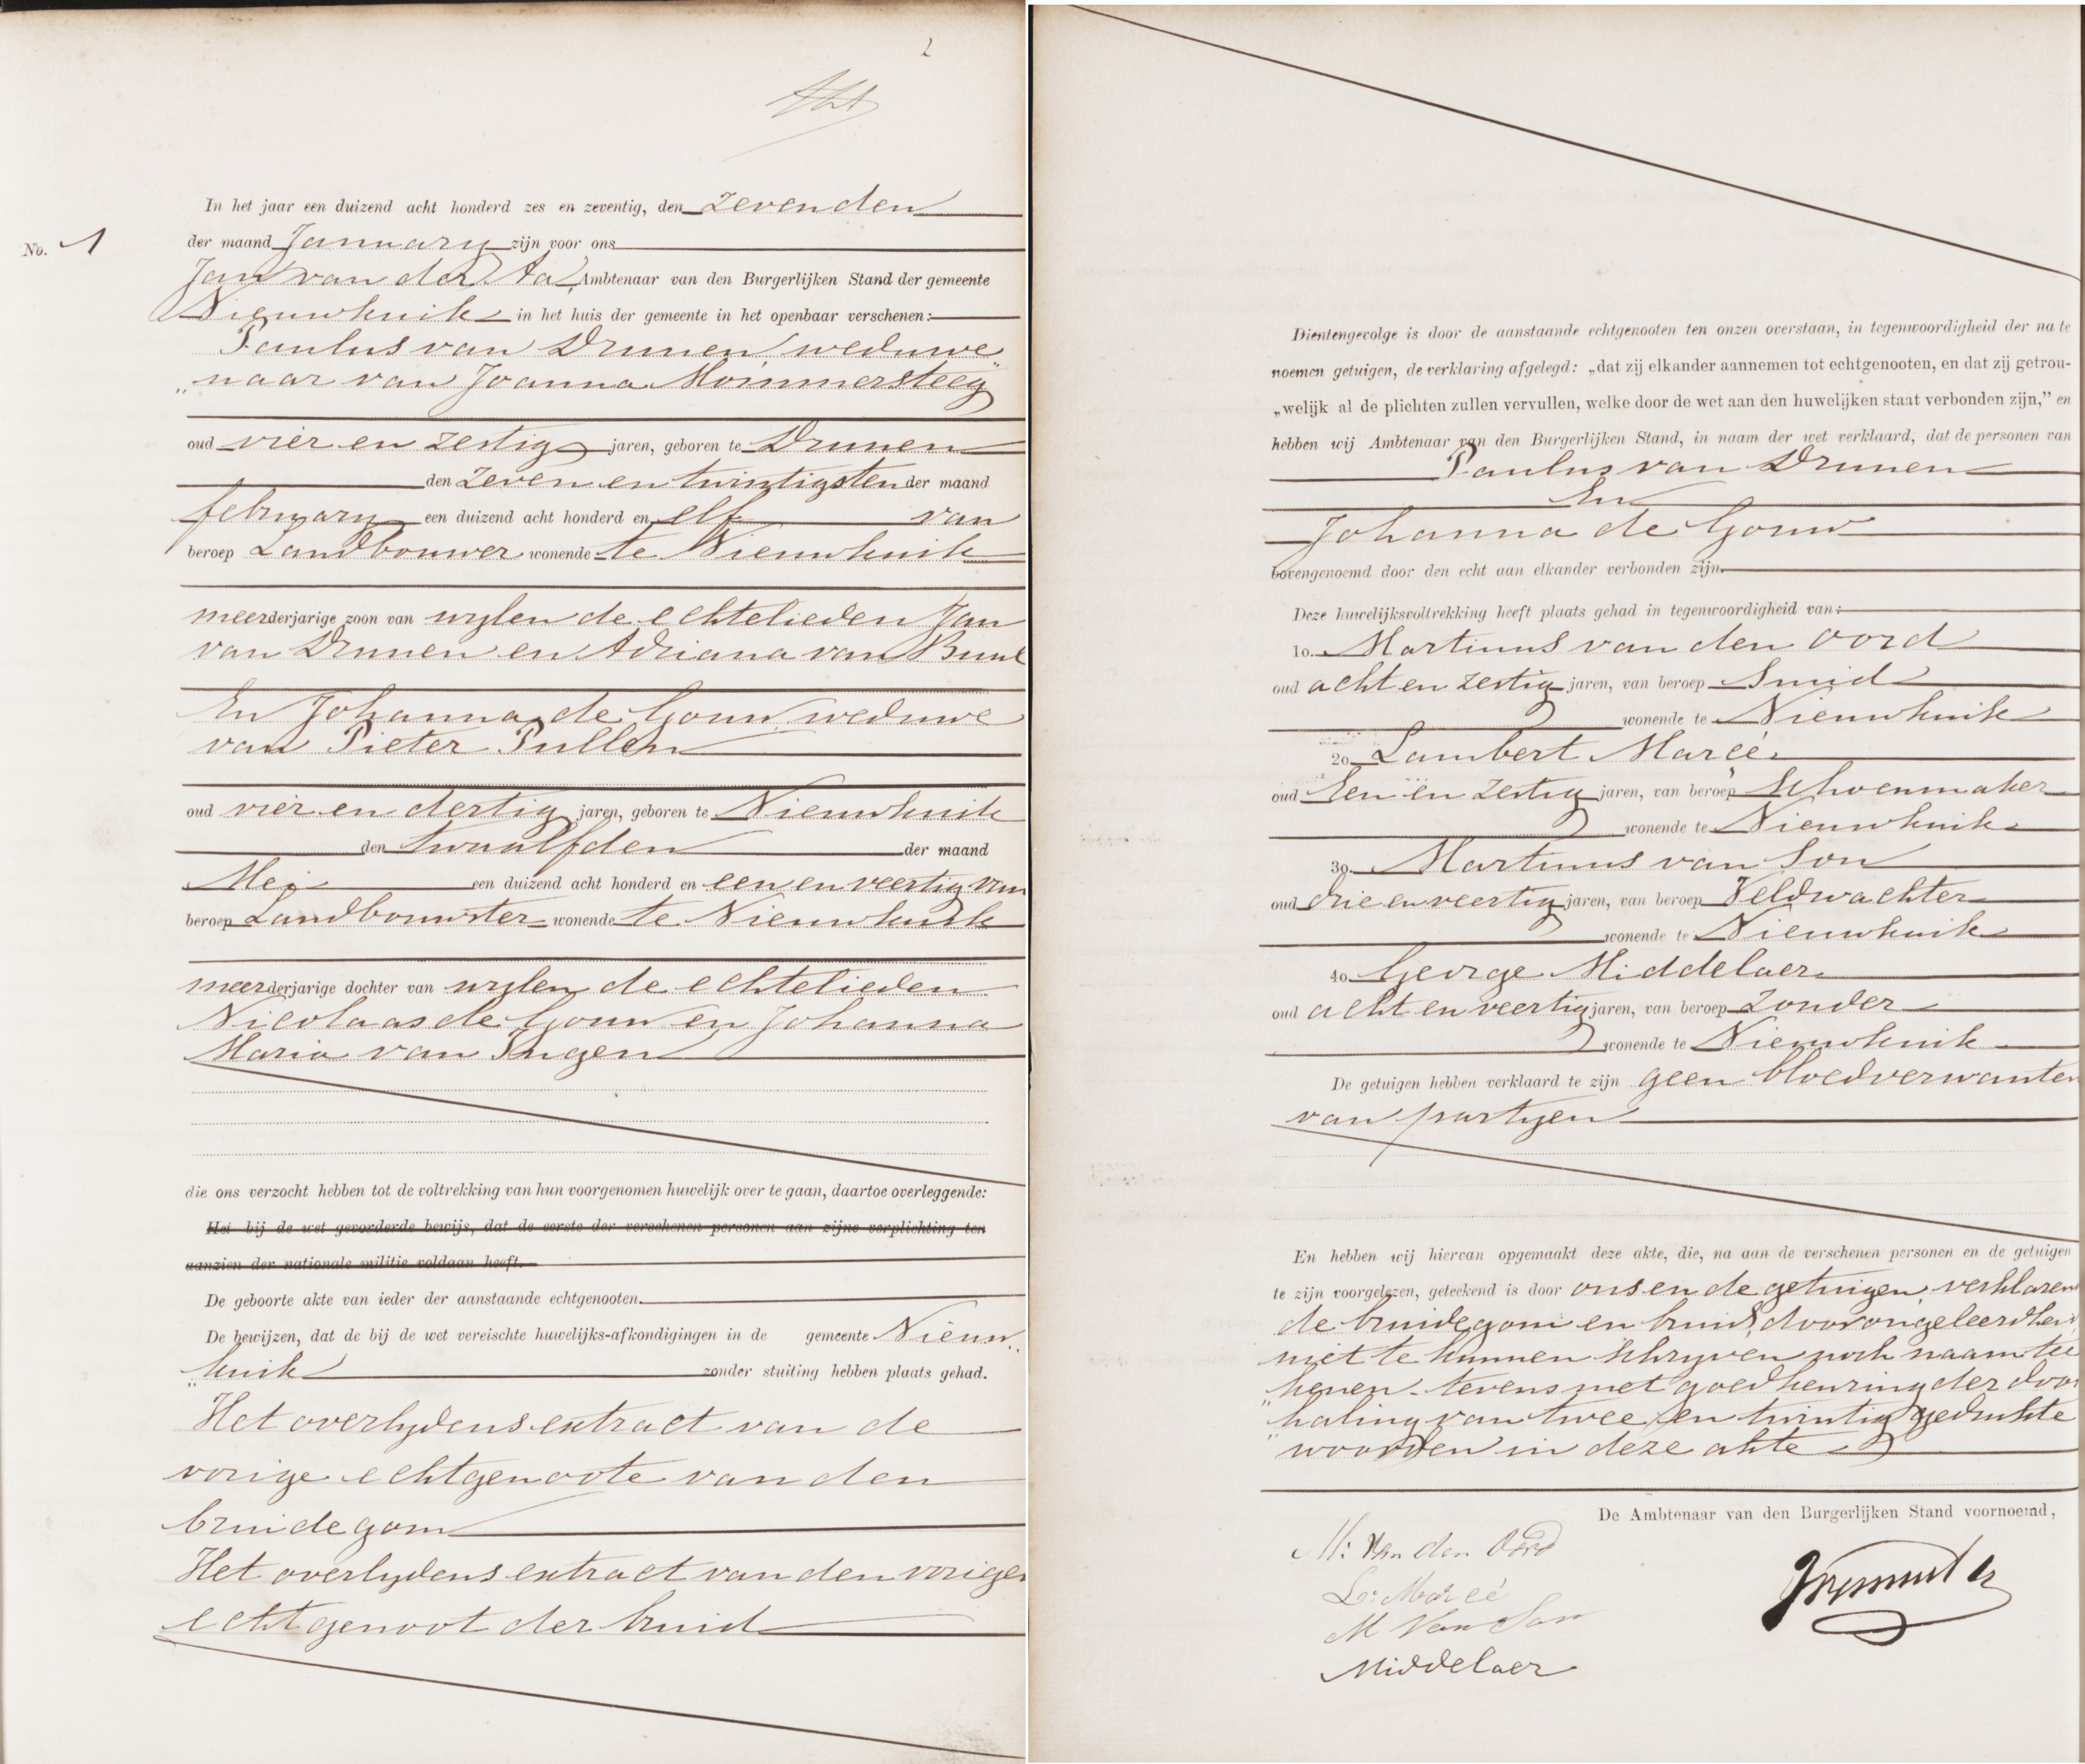 2
In het jaar een duizend acht honderd zes en zeventig, den zevenden
No. 1
der maand January zijn voor ons
Jan van der Aa, Ambtenaar van den Burgerlijken Stand der gemeente
Nieuwkuik in het huis der gemeente in het openbaar verschenen:
Paulus van Drunen weduwe„
„naar van Joanna Mommersteeg
oud vier en zestig jaren, geboren te Drunen
den zeven en twintigsten der maand
february een duizend acht honderd en elf van
beroep Landbouwer wonende te Nieuwkuik
meerderjarige zoon van wylen de echtelieden Jan
van Drunen en Adriana van Buul
En Johanna de Gouw weduwe
van Pieter Pullen
oud vier en dertig jaren, geboren te Nieuwkuik
den twaalfden der maand
Mei een duizend acht honderd en een en veertig van
beroep Landbouwster wonende te Nieuwkuik
meerderjarige dochter van wylen de echtelieden
Nicolaas de Gouw en Johanna
Maria van Ingen
die ons verzocht hebben tot de voltrekking van hun voorgenomen huwelijk over te gaan, daartoe overleggende:
Het bij de wet gevorderde bewijs, dat de eerste der verschenen personen aan zijne verplichting ten
aanzien der nationale militie voldaan heeft.
De geboorte akte van ieder der aanstaande echtgenooten.
De bewijzen, dat de bij de wet vereischte huwelijks-afkondigingen in de gemeente Nieuw„
„kuik zonder stuiting hebben plaats gehad.
Het overlydens extract van de
vorige echtgenoote van den
bruidegom
Het overlydens extract van den vorigen
echtgenoot der bruid
Dientengevolge is door de aanstaande echtgenooten ten onzen overstaan, in tegenwoordigheid der na te
noemen getuigen, de verklaring afgelegd: „dat zij elkander aannemen tot echtgenooten, en dat zij getrou-
„welijk al de plichten zullen vervullen, welke door de wet aan den huwelijken staat verbonden zijn,” en
hebben wij Ambtenaar van den Burgerlijken Stand, in naam der wet verklaard, dat de personen van
Paulus van Drunen
En
Johanna de Gouw
bovengenoemd door den echt aan elkander verbonden zijn.
Deze huwelijksvoltrekking heeft plaats gehad in tegenwoordigheid van:
1o. Martinus van den Oord
oud acht en zestig jaren, van beroep Smid
wonende te Nieuwkuik
2o. Lambert Marcé
oud Een en zestig jaren, van beroep Schoenmaker
wonende te Nieuwkuik
3o. Martinus van Son
oud drie en veertig jaren, van beroep Veldwachter
wonende te Nieuwkuik
4o. George Middelaer
oud acht en veertig jaren, van beroep zonder
wonende te Nieuwkuik
De getuigen hebben verklaard te zijn geen bloedverwanten
van partyen
En hebben wij hiervan opgemaakt deze akte, die, na aan de verschenen personen en de getuigen
te zijn voorgelezen, geteekend is door ons en de getuigen, verklarende
de bruidegom en bruid, door ongeleerdheid
niet te kunnen schryven noch naamtee
„kenen. tevens met goedkeuring der door
„haling van twee en twintig gedrukte
woorden in deze akte
De Ambtenaar van den Burgerlijken Stand voornoemd,
M: Van den Oord
L: Marcé
M Van Son
Middelaer